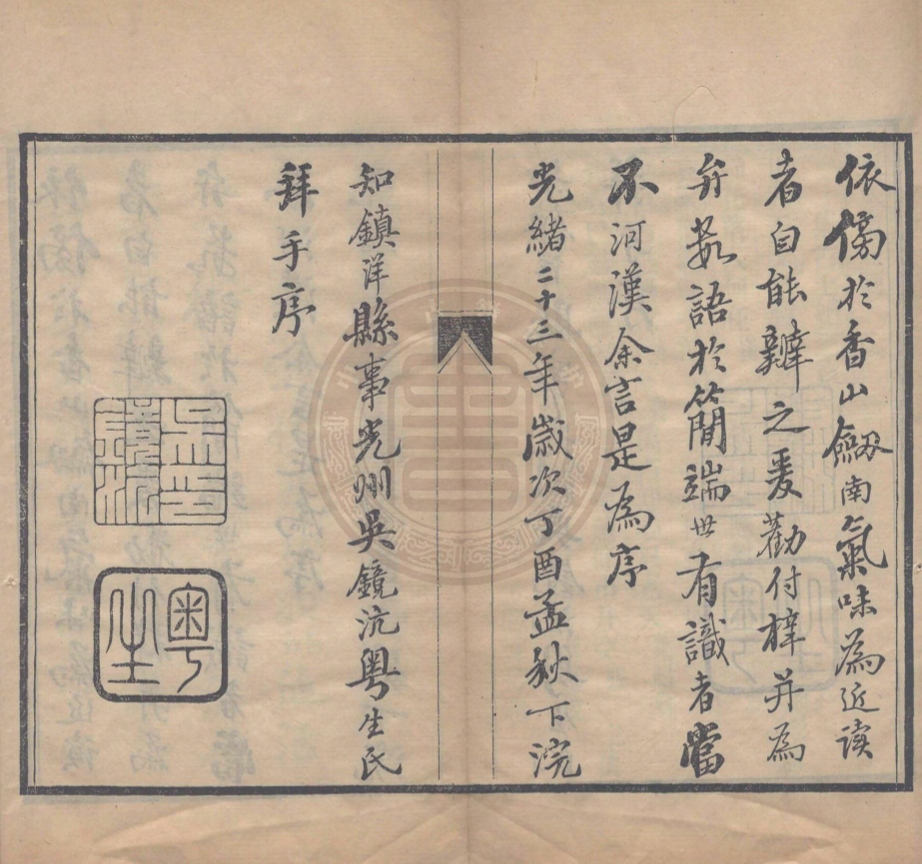 依傍於香山劔南氣味為近讀
者自能辨之爰勸付梓并為
弁數語於簡端世有識者當
不河漢余言是為序
光緒二十三年歲次丁酉孟秋下浣
知鎮洋縣事光州吳鏡沆粵生氏
拜手序
吳印鏡沆
粵生